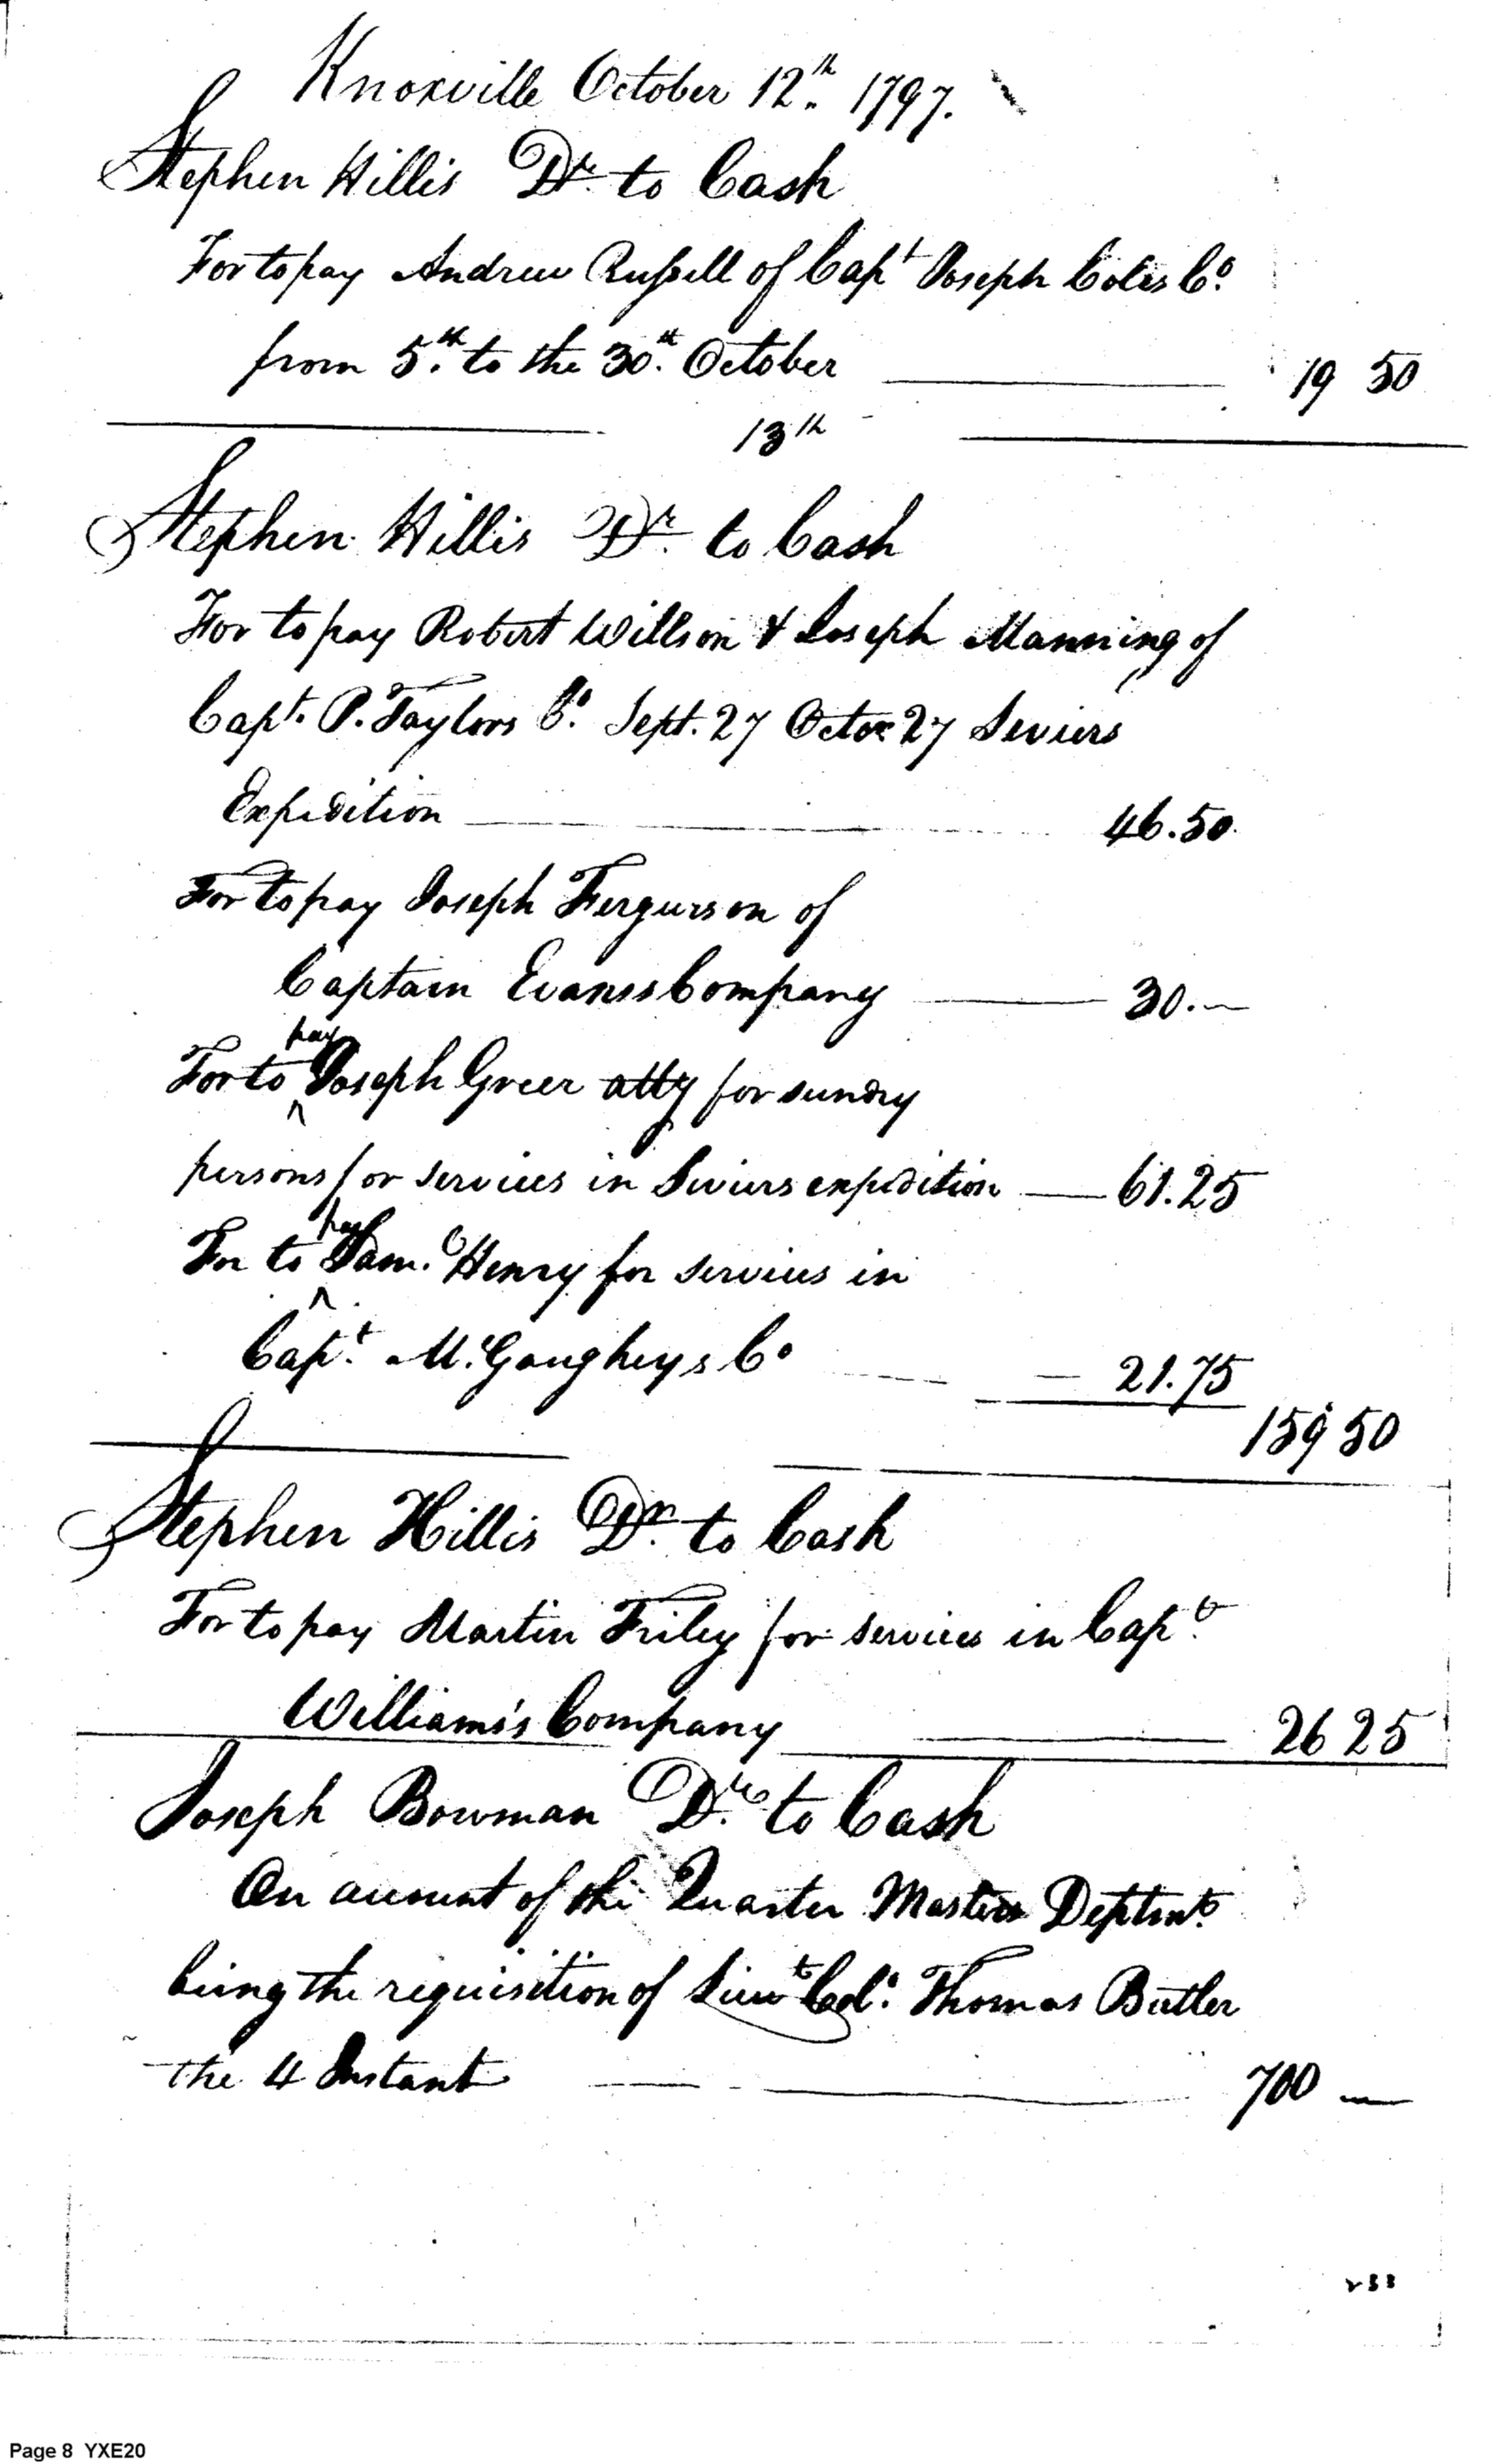 Knoxville October 12th. 1797.
Stephen Hillis Dr. to Cash
For to pay Andrew Russell of Capt Joseph Coles Co.
from 5th. to the 30th. October 19 50
13th
Stephen Hillis Dr. to Cash
For to pay Robert Willson & Joseph Manning of
Capt. P. Taylors Co. Sept. 27 Octor 27 Seviers
Expedition 46.50
For to pay Joseph Fergurson of
Captain Evanss Company 30.—
For to pay Joseph Greer atty for sundry
persons for services in Seviers expedition 61.25
For to pay Sam. Henry for services in
Capt. McGaugheys Co 21.75
159 50
Stephen Hillis Dr. to Cash
For to pay Martin Friley for services in Capt.
Williams's Company 26 25
Joseph Bowman Dr. to Cash
On account of the Quarter Masters Deptmt.
being the requisition of Lieut Col. Thomas Butler
the 4 Instant 700 —
Page 8 YXE20